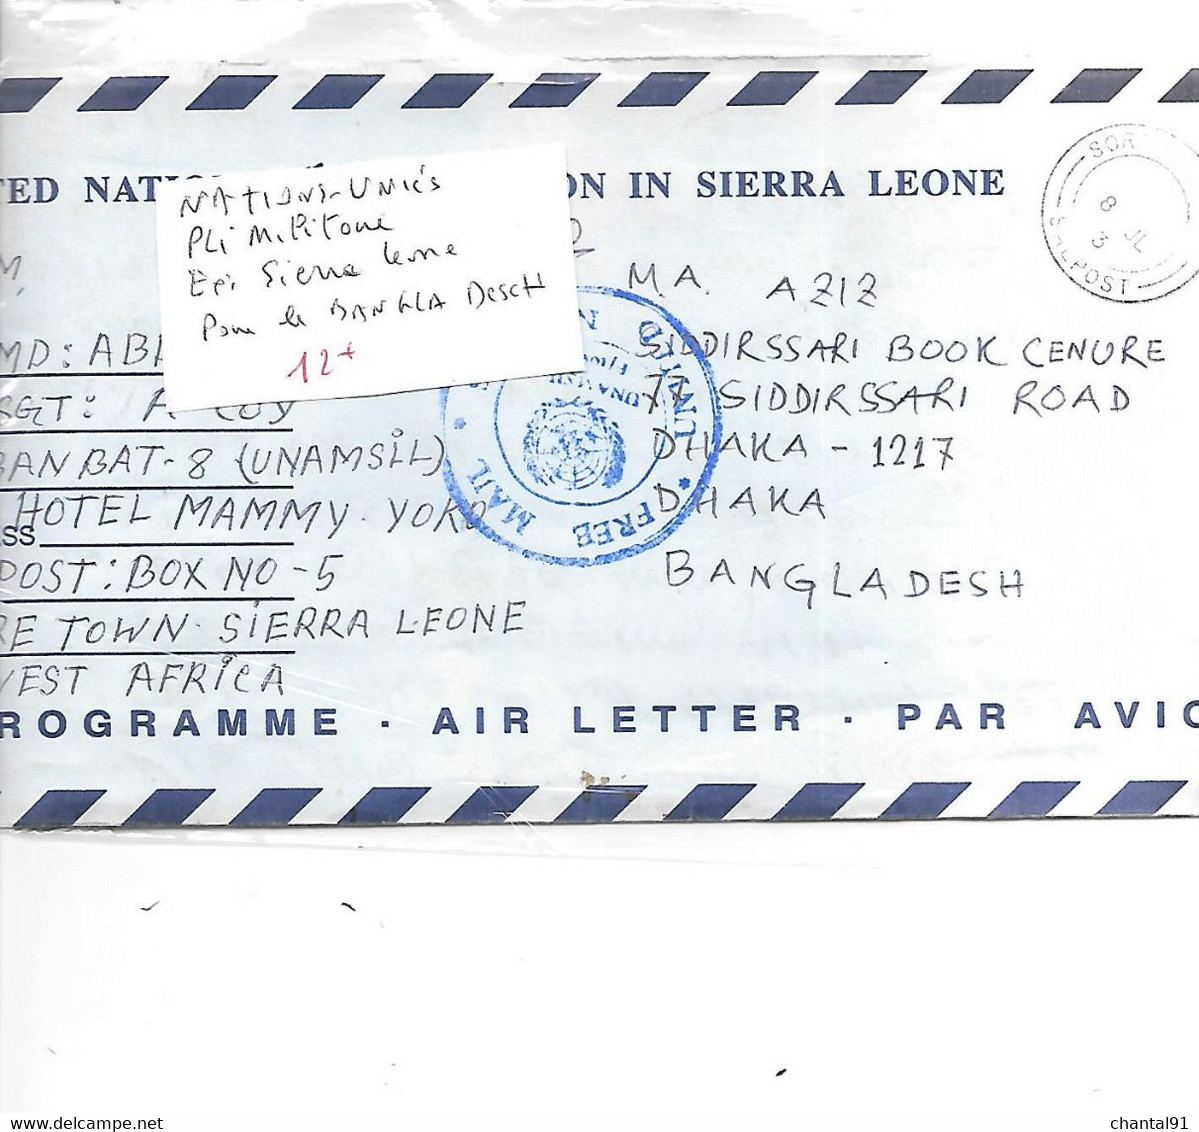 TED NAT ON IN SIERRA LEONE
NATIONS-UNIES
PLI Militaire
Sierra Leone
Pour le BANGLA DescH
12+
MD: ABI
SGT: A COY
BANBAT-8 (UNAMSiL)
HOTEL MAMMY YOKO
SS
POST: BOX NO-5
RE TOWN. SiERRA LEONE
WEST AFRiCA
M.A. AZIZ
SIDDIRSSARI BOOK CENURE
77 SIDDIRSSARI ROAD
DHAKA-1217
DHAKA
BANGLADESH
UNITED N
FREE MAIL
UNAMSIL
SOR
8 JL
3
SALPOST
ROGRAMME · AIR LETTER · PAR AVIO
chantal91